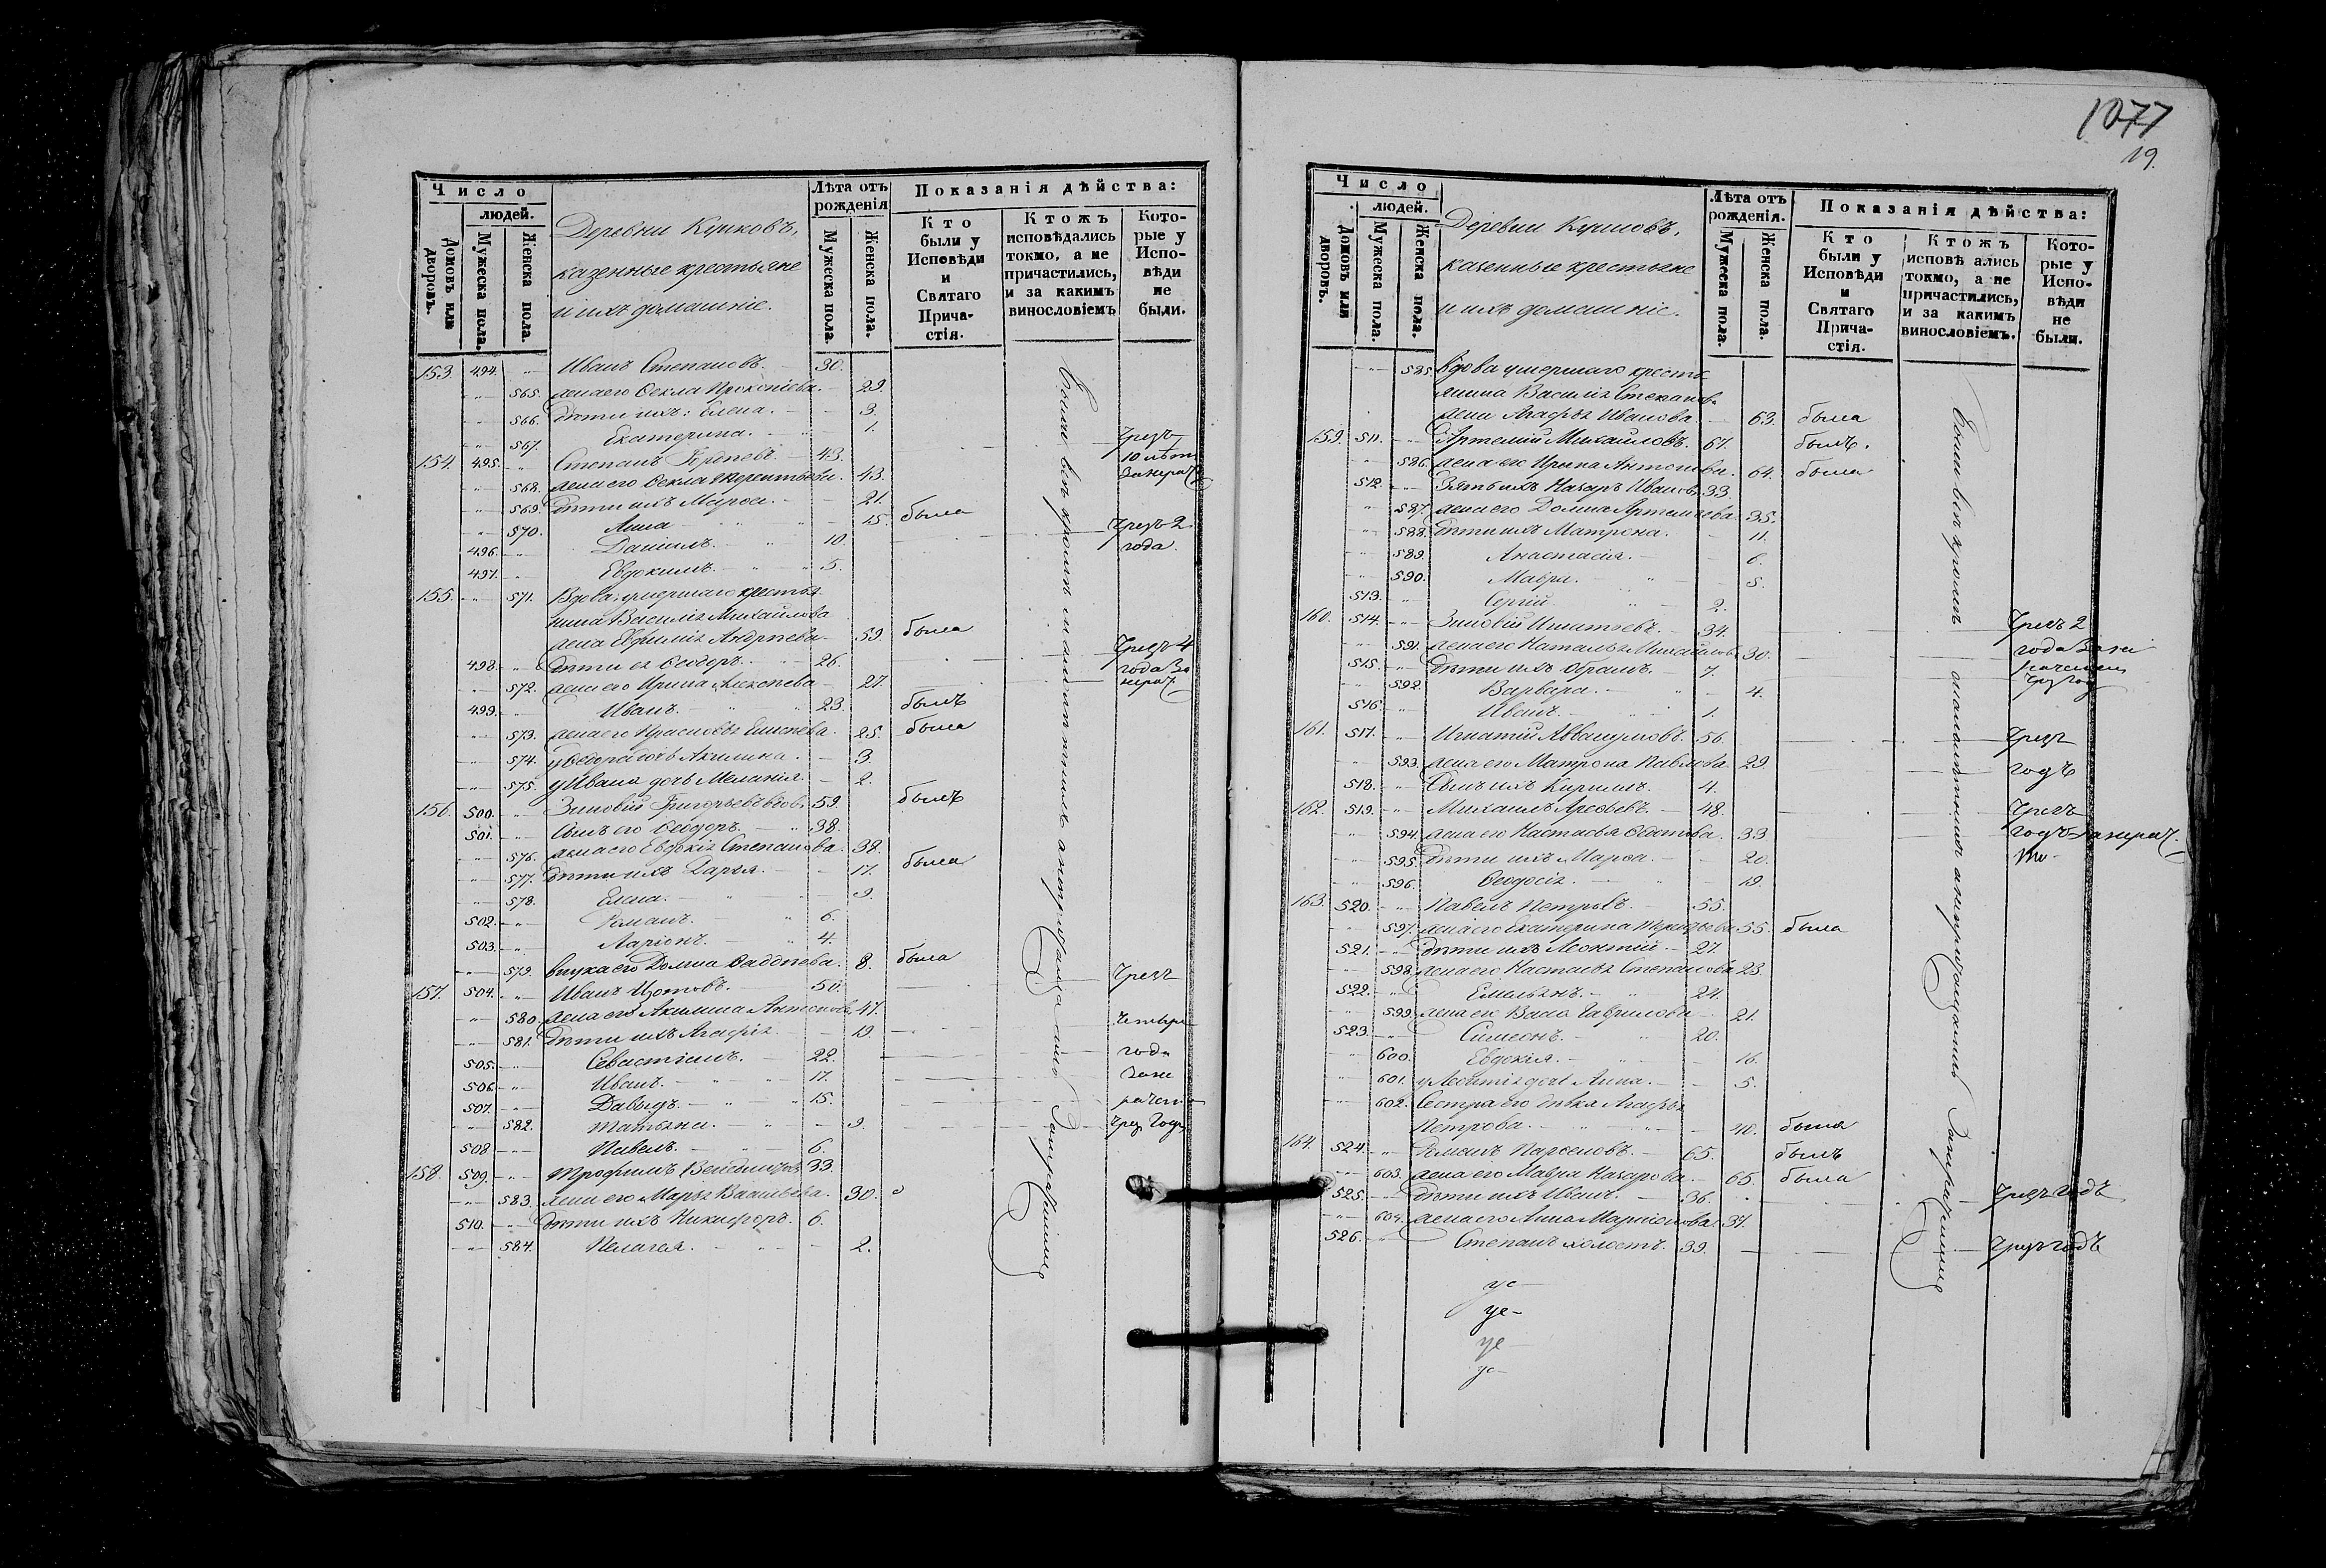 Число
людей.
Домовъ или дворовъ.
Мужеска пола.
Женска пола.
Деревни Курковъ,
казенные крестьяне
и ихъ домашніе.
Лѣта отъ рожденія
Мужеска пола.
Женска пола.
Показанія дѣйства:
Кто были у Исповѣди и Святаго Причастія.
Ктожъ исповѣдались токмо, а не причастились, и за какимъ винословіемъ
Которые у Исповѣди не были.
153. 494. Иванъ Степановъ. 30.
565. жена его Ѳекла Прокопіева. 29
566. Дѣти ихъ: Елена. 3.
567. Екатерина. 1.
154. 495. Степанъ 43. Чрезъ 10 лѣтъ
568. жена его Ѳекла Терентьева. 43.
569. Дѣти ихъ Марѳа. 21.
570. Анна 15. была
496. Даніилъ. 10. Чрезъ 2 года.
497. Евдокимъ. 5.
155. 571. Вдова умершаго крестья
нина Василія Михайлова
жена Евфимія Андреева 59 была
498. Дѣти ея Ѳеодоръ. 26. Чрезъ 4 года
572. жена его Ирина Алексѣева 27.
499. Иванъ. 23. былъ
573. жена его 25. была
574. у Ѳеодора дочь Акилина. 3.
575. у Ивана дочь Меланія. 2.
156. 500. Зиновій Григорьевъ вдов. 59. былъ
501. Сынъ его Ѳеодоръ. 38.
576. жена его Евдокія Степанова. 39.
577. Дѣти ихъ Дарья. 17. была
578. Елена. 9.
502. Романъ. 6.
503. Ларіонъ. 4.
579. внука его Домна Ѳаддѣева. 8. была
157. 504. Иванъ Изотовъ. 50. Чрезъ
580. жена его Акилина Антонова 47. четыре
581. Дѣти ихъ Агафія 19.
505. Севастіанъ. 22. года
506. Иванъ. 17. за не
507. Давыдъ. 15.
582. Татьяна. 9. чрез Годъ
508 Павелъ. 6.
158. 509. Трофимъ 33.
583. жена его Марья Васильева. 30.
510. Дѣти ихъ Никифоръ. 6.
584. Пелагея. 2.
1077
19.
Число
людей.
Домовъ или дворовъ.
Мужеска пола.
Женска пола.
Деревни Курковъ,
казенные крестьяне
и ихъ домашніе.
Лѣта отъ рожденія.
Мужеска пола.
Женска пола.
Показанія дѣйства:
Кто были у Исповѣди и Святаго Причастія.
Ктожъ исповѣ ались токмо, а не причастились, и за какимъ винословіемъ.
Которые у Исповѣди не были.
585. Вдова умершаго кресть
янина Василія Степанова
жена Агафья Иванова 63. была
159. 511. Артемій Михайловъ. 67. былъ.
586. жена его Ирина Антонова. 64. была
512. Зять ихъ Назаръ Ивановъ 33.
587. жена его Домна Артемьева 35.
588. Дѣти ихъ Матрона. 11.
589. Анастасія. 6.
590. Мавра. 5.
513. Сергій. 2.
160. 514. Зиновій Игнатьевъ. 34. Чрезъ 2 года
591. жена его Наталья Михайлова 30.
515. Дѣти ихъ Абрамъ. 7.
592. Варвара. 4.
516. Иванъ. 1.
161. 517. Игнатій Аввакумовъ. 56. Чрезъ
593. жена его Матрона Павлова 29 годъ
518. Сынъ ихъ Кириллъ. 4.
162. 519. Михаилъ 48. Чрезъ
594. жена его Настасья 33 годъ
595. Дѣти ихъ Марѳа. 20.
596. Ѳеодосія. 19.
163. 520. Павелъ Петровъ. 55.
597. жена его Екатерина 55. была
521. Дѣти ихъ Леонтій. 27.
598. жена его Настасья Степанова 23.
522. Емельянъ. 24.
599. жена его Васса Гаврилова 21.
523. Симеонъ. 20.
600. Евдокія. 16.
601. у Леонтія дочь Анна. 5.
602. Сестра его дѣвка Агафья
Петрова. 40. была
164. 524. Романъ Парѳеновъ. 65. былъ
603. жена его Мавра Назарова. 65. была
525. Дѣти ихъ Иванъ. 36. Чрезъ Годъ
604. жена его Анна 37.
526. Степанъ холостъ. 39. Чрезъ годъ